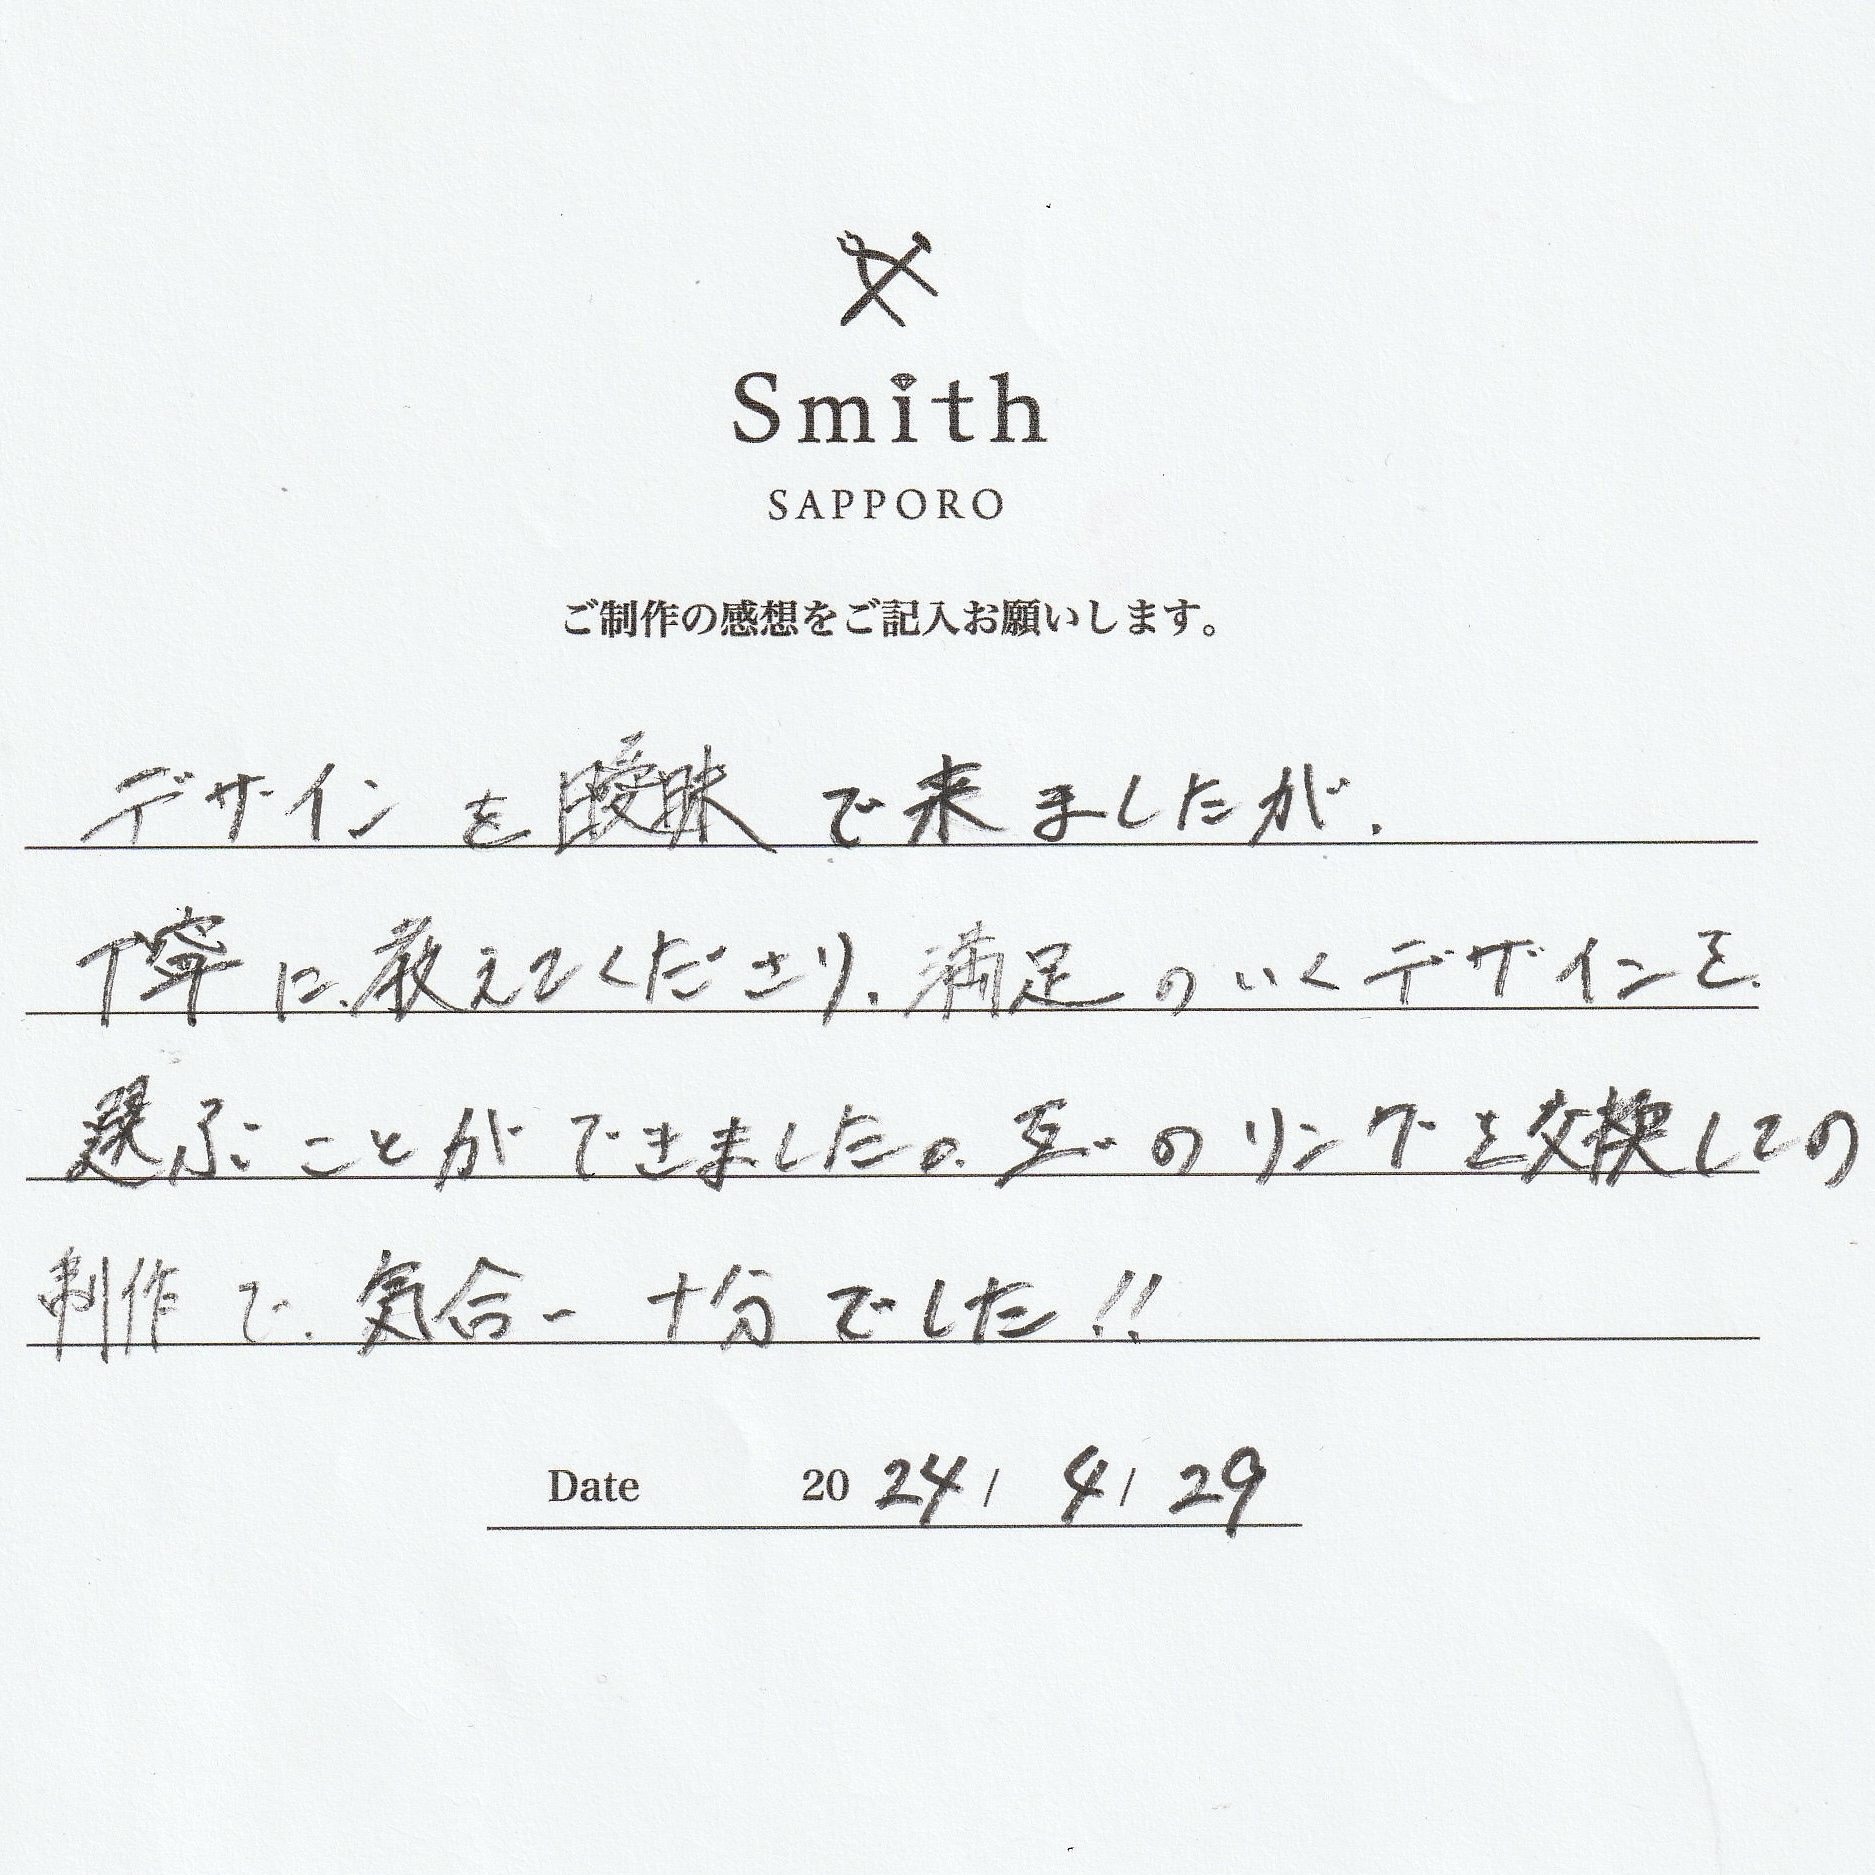 Smith
SAPPORO
ご制作の感想をご記入お願いします。
デザインを曖昧で来ましたが、
丁寧に教えてくださり、満足のいくデザインを
選ぶことができました。互いのリングを交換しての
制作で、気合い十分でした!!
Date 2024/ 4/ 29